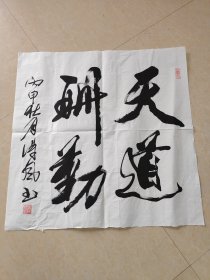 天道
酬勤
丙申秋月
书